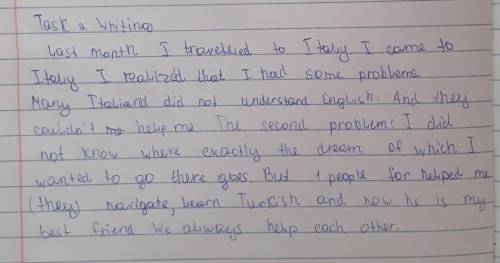 Task 2 Writing
Last month I travetlied to Italy I came to
Italy I realized that I had some problems.
Many Italiand did not understand English. And they
couldn't help me. The second problem: I did
not know where exactly the dream of which I
wanted to go there goes. But 1 people for helped me
(they) navigate, learn Turkish and now he is my
best friend We always help each other.